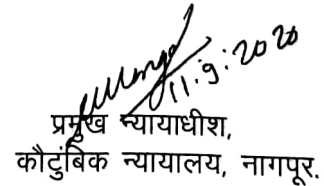 11.9.2020
प्रमुख न्यायाधीश,
कौटुंबिक न्यायालय, नागपूर.